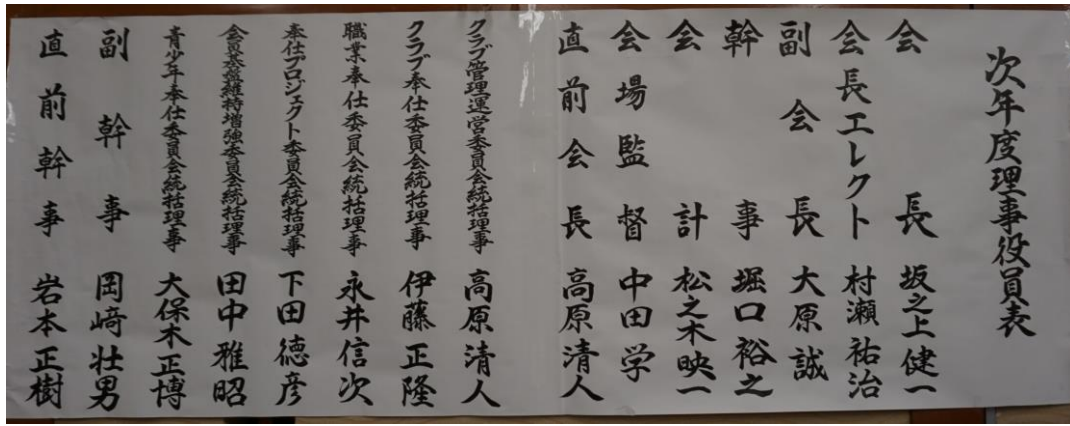 次年度理事役員表
会長 坂之上健一
会長エレクト 村瀬祐治
副会長 大原誠
幹事 堀口裕之
会計 松之木映一
会場監督 中田学
直前会長 高原清人
クラブ管理運営委員会統括理事 高原清人
クラブ奉仕委員会統括理事 伊藤正隆
職業奉仕委員会統括理事 永井信次
奉仕プロジェクト委員会統括理事 下田徳彦
会員基盤維持増強委員会統括理事 田中雅昭
青少年奉仕委員会統括理事 大保木正博
副幹事 岡﨑壮男
直前幹事 岩本正樹